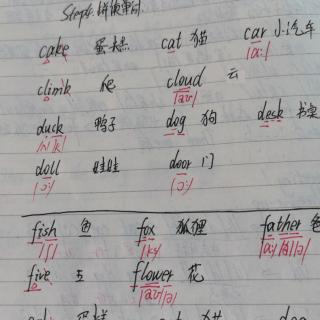 Step4.拼读单词
cake 蛋糕 cat 猫 car 小汽车
/ɑː/
climb 爬 cloud 云
/aʊ/
duck 鸭子 dog 狗 desk 书桌
/ʌ/ /k/
doll 娃娃 door 门
/ɔː/
fish 鱼 fox 狐狸 father 爸
/ʃ/ /ks/ /ɑː/ /ð/ /ə/
five 五 flower 花
/aʊ/ /ə/